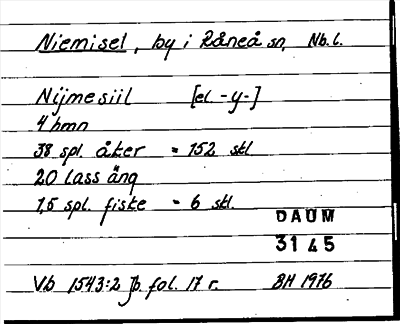 Niemisel, by i Råneå sn, Nb.l.
Nijmesiil [el. -y-]
4 hmn
38 spl. åker = 152 skl.
20 lass äng
1,5 spl. fiske = 6 skl.
DAUM
3145
Vb 1543:2 Jb. fol. 17 r. BH 1976